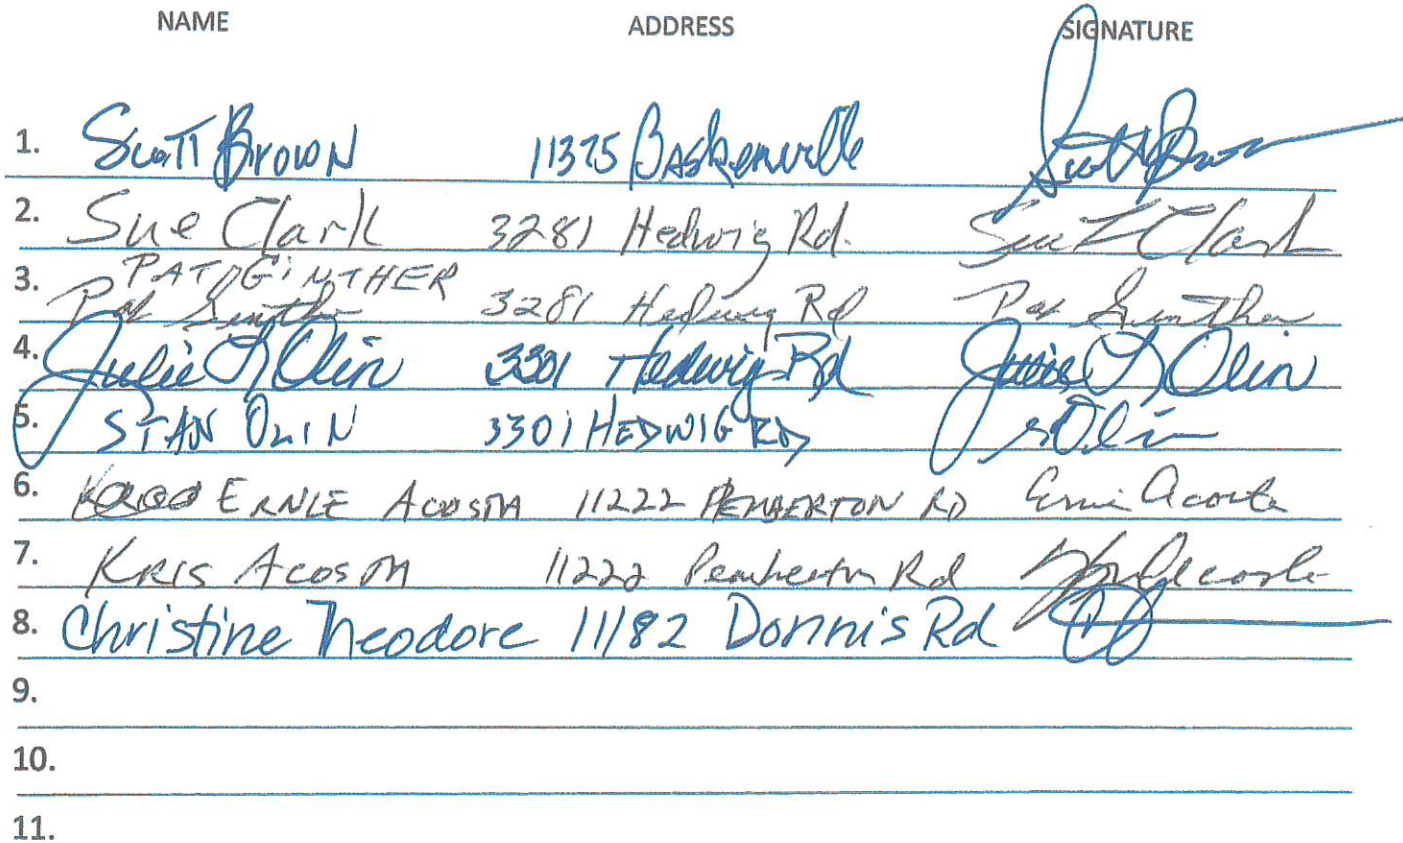 NAME ADDRESS SIGNATURE
1. Scott Brown 11375 Baskerville Scott Brown
2. Sue Clark 3281 Hedwig Rd. Sue L Clark
PAT GINTHER
3. Pat Ginther 3281 Hedwig Rd Pat Ginther
4. Julie L Olin 3301 Hedwig Rd Julie L Olin
5. STAN OLIN 3301 HEDWIG RD S Olin
6. ERNIE ACOSTA 11222 PEMBERTON RD Ernie Acosta
7. KRIS ACOSTA 11222 Pemberton Rd Acosta
8. Christine Theodore 11182 Donnis Rd
9.
10.
11.